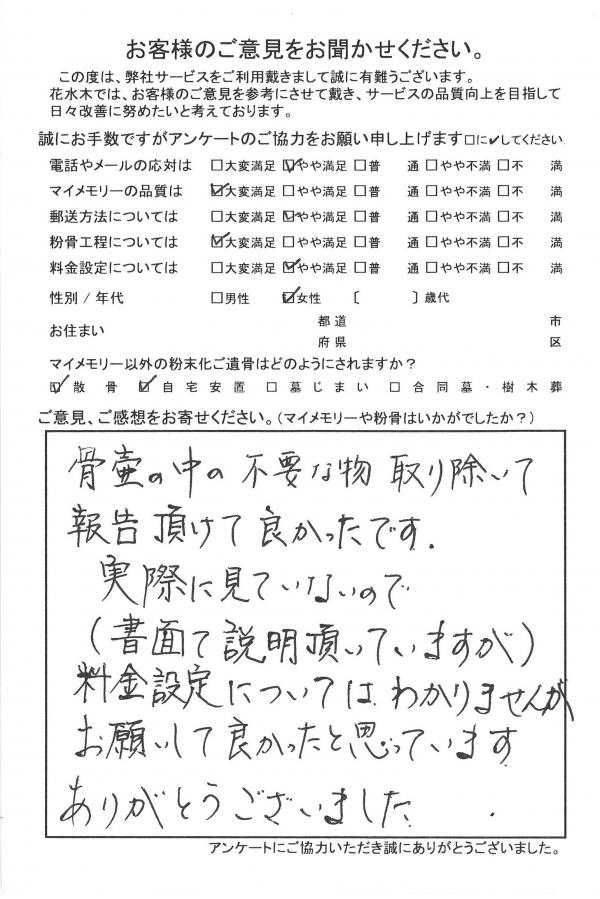 お客様のご意見をお聞かせください。
この度は、弊社サービスをご利用戴きまして誠に有難うございます。
花水木では、お客様のご意見を参考にさせて戴き、サービスの品質向上を目指して
日々改善に努めたいと考えております。
誠にお手数ですがアンケートのご協力をお願い申し上げます□に✔してください
電話やメールの応対は □大変満足 ☑やや満足 □普 通 □やや不満 □不 満
マイメモリーの品質は ☑大変満足 □やや満足 □普 通 □やや不満 □不 満
郵送方法については □大変満足 ☑やや満足 □普 通 □やや不満 □不 満
粉骨工程については ☑大変満足 □やや満足 □普 通 □やや不満 □不 満
料金設定については □大変満足 ☑やや満足 □普 通 □やや不満 □不 満
性別 / 年代 □男性 ☑女性 〔 〕歳代
お住まい 都道府県 市区
マイメモリー以外の粉末化ご遺骨はどのようにされますか?
☑散骨 ☑自宅安置 □墓じまい □合同墓・樹木葬
ご意見、ご感想をお寄せください。(マイメモリーや粉骨はいかがでしたか?)
骨壷の中の不要な物 取り除いて
報告頂けて良かったです.
実際に見ていないので
(書面で説明頂いていますが)
料金設定についてはわかりませんが
お願いして良かったと思っています
ありがとうございました.
アンケートにご協力いただき誠にありがとうございました。